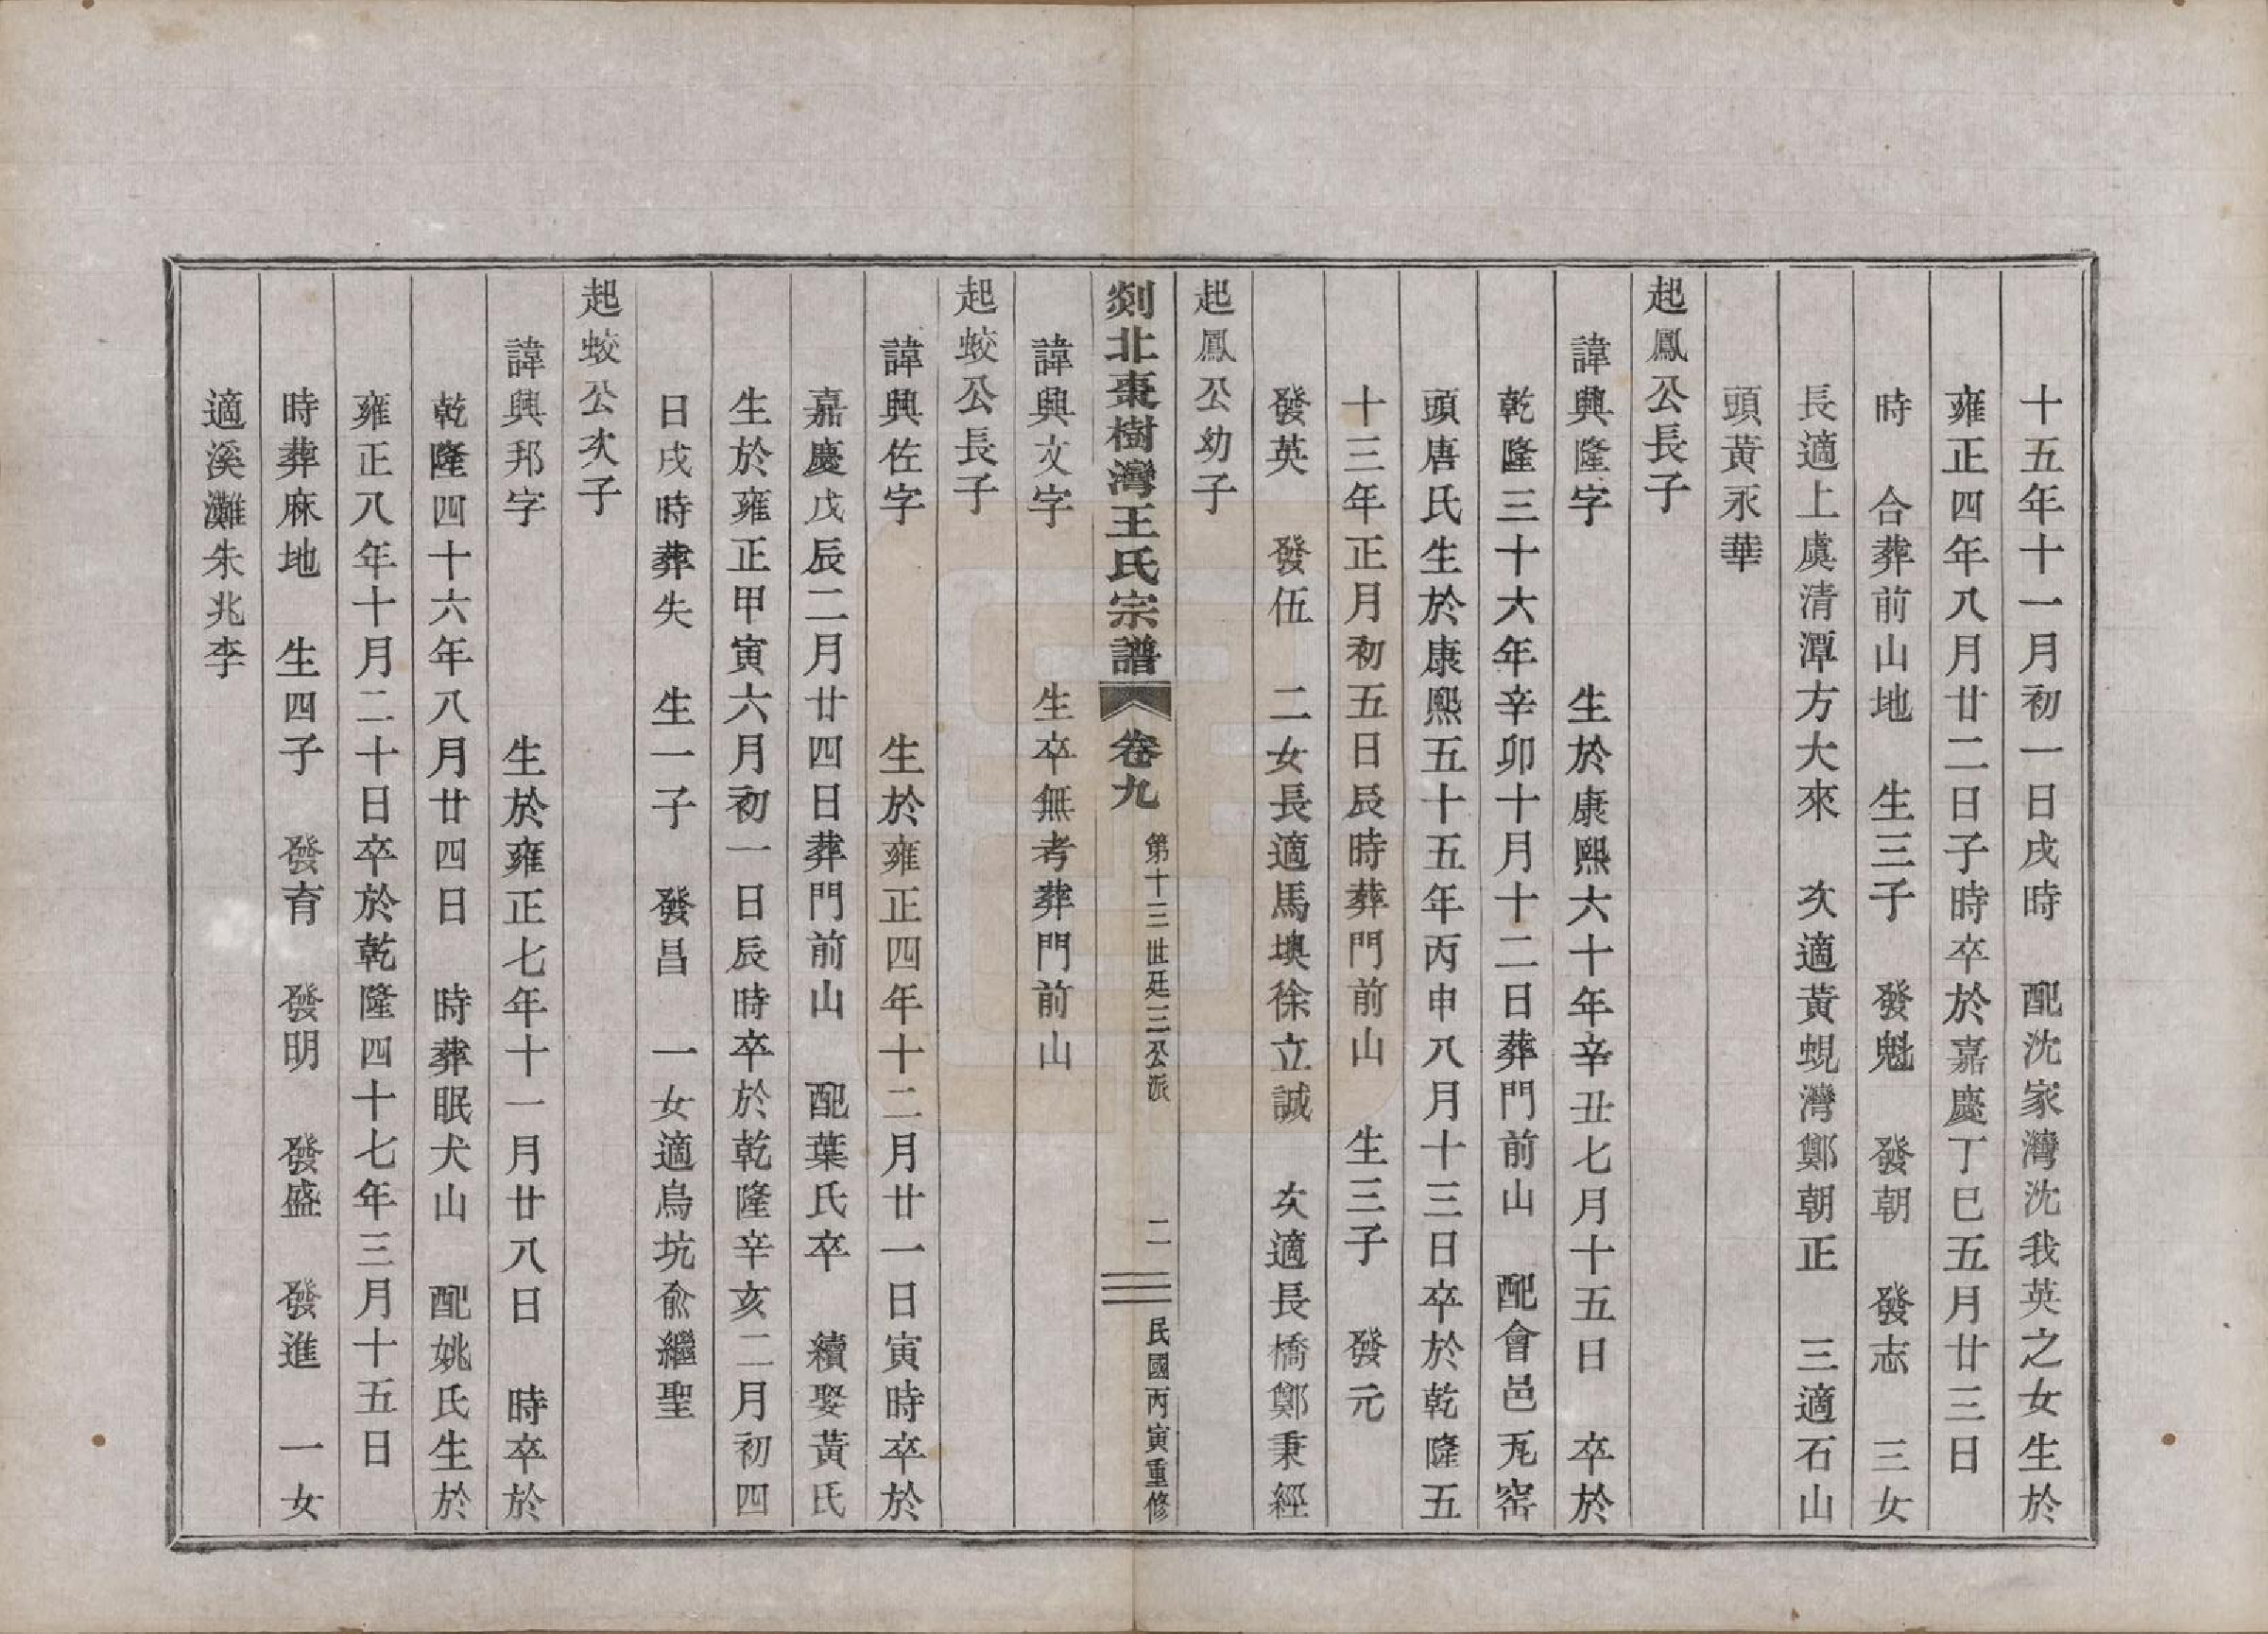 十五年十一月初一日戌時　配沈家灣沈我英之女生於
雍正四年八月廿二日子時卒於嘉慶丁巳五月廿三日
時　合葬前山地　生三子　發魁　發朝　發志　三女
長適上虞清潭方大來　次適黃蜆灣鄭朝正　三適石山
頭黃永華
起鳳公長子
諱興隆字　　　生於康熙六十年辛丑七月十五日　卒於
乾隆三十六年辛卯十月十二日葬門前山　配會邑瓦窑
頭唐氏生於康熙五十五年丙申八月十三日卒於乾隆五
十三年正月初五日辰時葬門前山　生三子　發元
發英　發伍　二女長適馬墺徐立誠　次適長橋鄭秉經
起鳳公幼子
剡北棗樹灣王氏宗譜　卷九　第十三世廷三公派　二　民國丙寅重修
諱興文字　　　生卒無考葬門前山
起蛟公長子
諱興佐字　　　　生於雍正四年十二月廿一日寅時卒於
嘉慶戊辰二月廿四日葬門前山　配葉氏卒　續娶黃氏
生於雍正甲寅六月初一日辰時卒於乾隆辛亥二月初四
日戌時葬失　生一子　發昌　一女適烏坑俞繼聖
起蛟公次子
諱興邦字　　　　生於雍正七年十一月廿八日　時卒於
乾隆四十六年八月廿四日　時葬眠犬山　配姚氏生於
雍正八年十月二十日卒於乾隆四十七年三月十五日
時葬麻地　生四子　發育　發明　發盛　發進　一女
適溪灘朱兆李